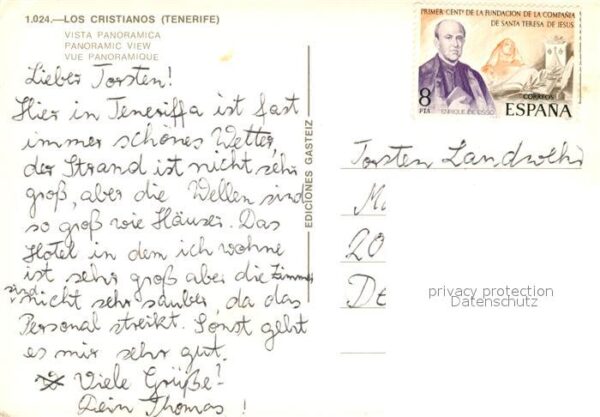 1.024.—LOS CRISTIANOS (TENERIFE)
VISTA PANORAMICA
PANORAMIC VIEW
VUE PANORAMIQUE
Lieber Torsten!
Hier in Teneriffa ist fast
immer schönes Wetter,
der Strand ist nicht sehr
groß, aber die Wellen sind
so groß wie Häuser. Das
Hotel in dem ich wohne
ist sehr groß aber die Zimmer
sind nicht sehr sauber, da das
Personal streikt. Sonst geht
es mir sehr gut.
Viele Grüße!
Dein Thomas!
EDICIONES GASTEIZ
PRIMER CENTº DE LA FUNDACION DE LA COMPAÑIA
DE SANTA TERESA DE JESUS
8
PTA
ENRIQUE DE OSSO
CORREOS
ESPAÑA
Torsten
20
privacy protection
Datenschutz